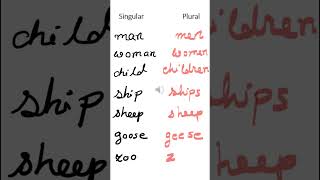 Singular Plural
man men
woman women
child children
ship ships
sheep sheep
goose geese
zoo z
child children
ship ships
sheep sheep